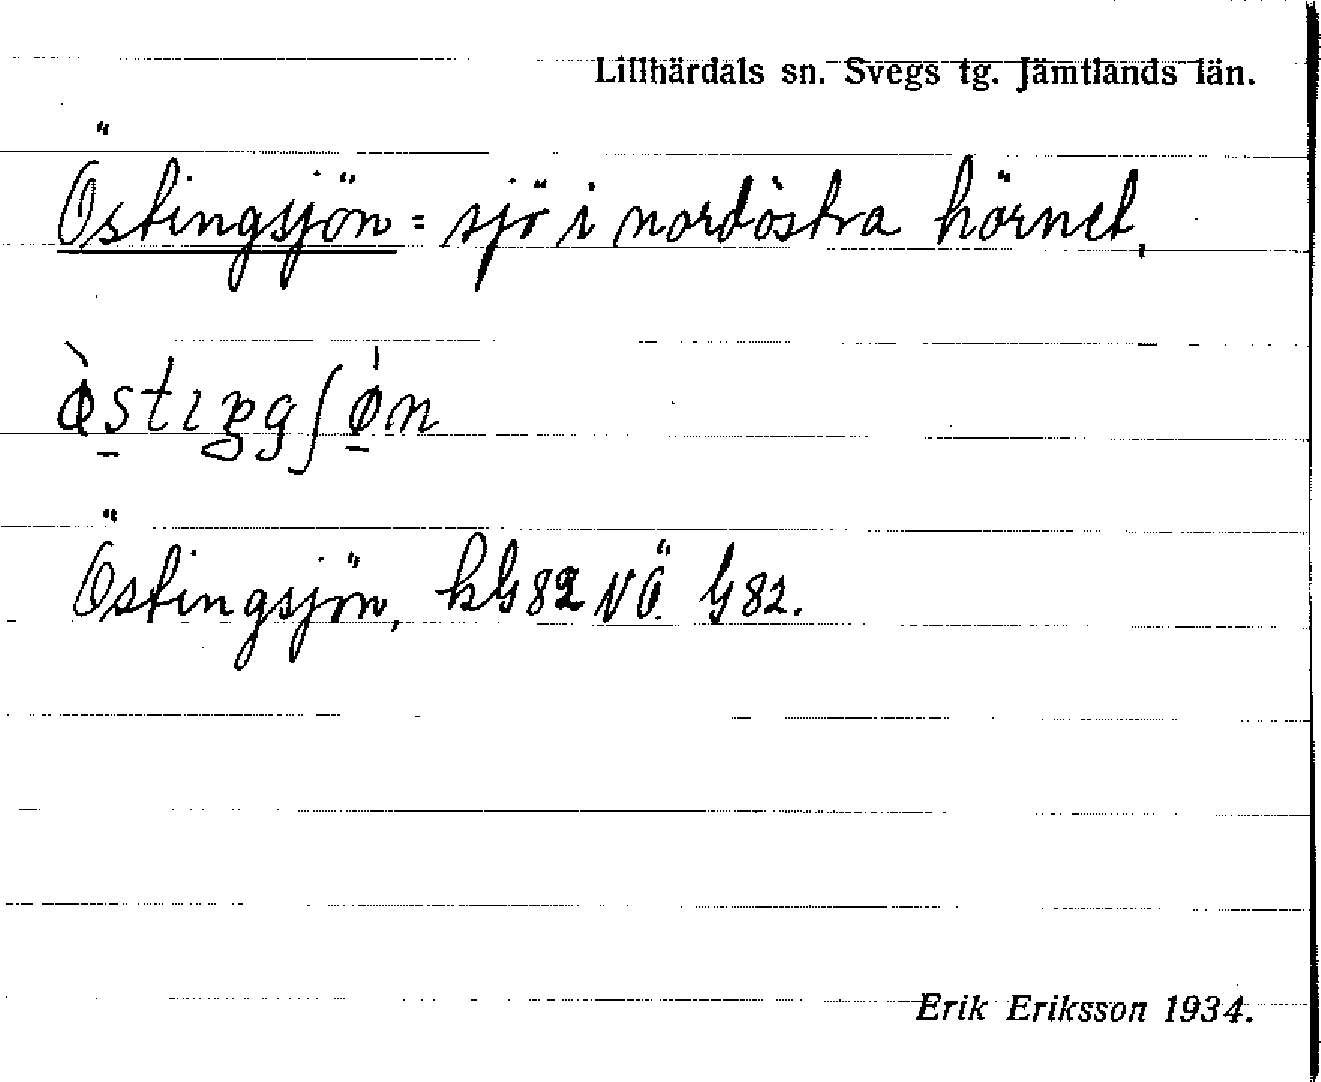 Lillhärdals sn. Svegs tg. Jämtlands län.
Östingsjön = sjö i nordöstra hörnet,
Östingsjön, kG82 NÖ G82.
Erik Eriksson 1934.